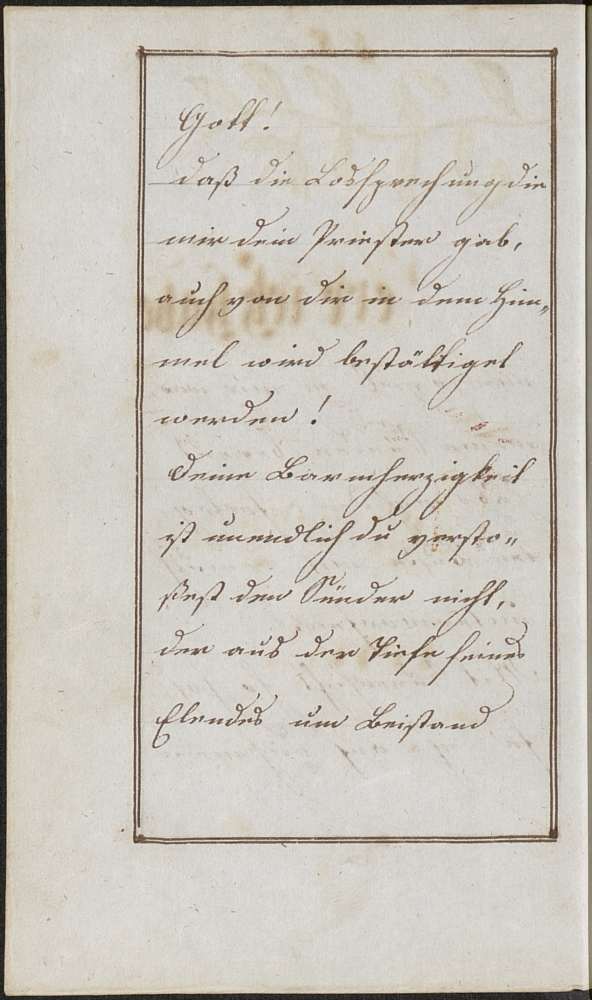 Gott!
daß die Lossprechung die
mir dein Priester gab,
auch von dir in dem Him„
mel wird bestättiget
werden!
Deine Barmherzigkeit
ist unendlich du versto„
ßest den Sünder nicht,
der aus der Tiefe seines
Elendes um Beistand